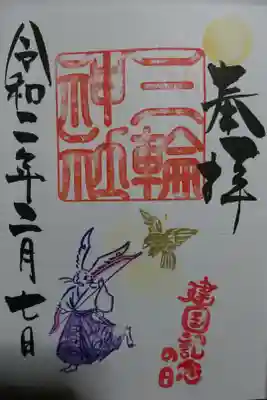 奉拝
三輪
神社
建国記念
の日
令和二年二月七日